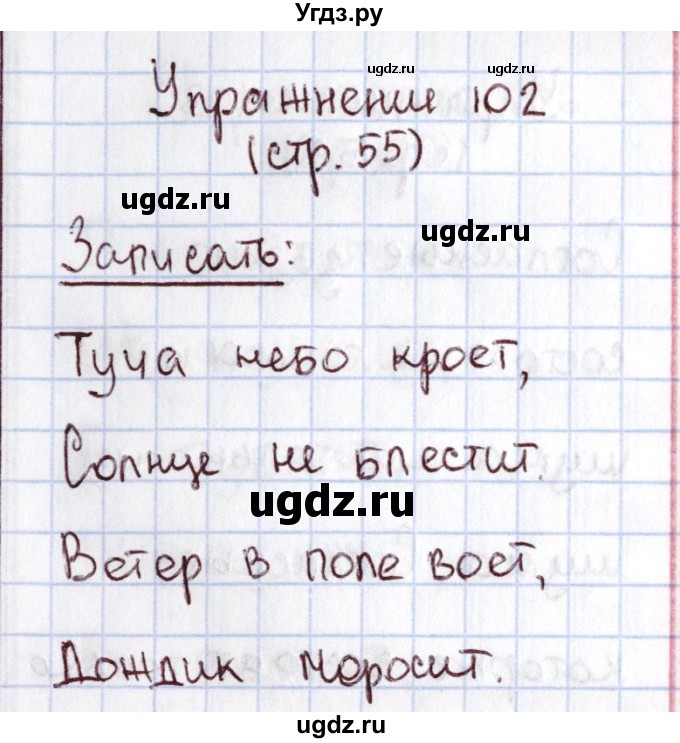 Угдз.ру
ugdz.ru ugdz.ru
Упражнение 102
(стр. 55)
ugdz.ru
ugdz.ru
Записать:
Туча небо кроет,
Солнце не блестит.
ugdz.ru
Ветер в поле воет,
Дождик моросит.
ugdz.ru